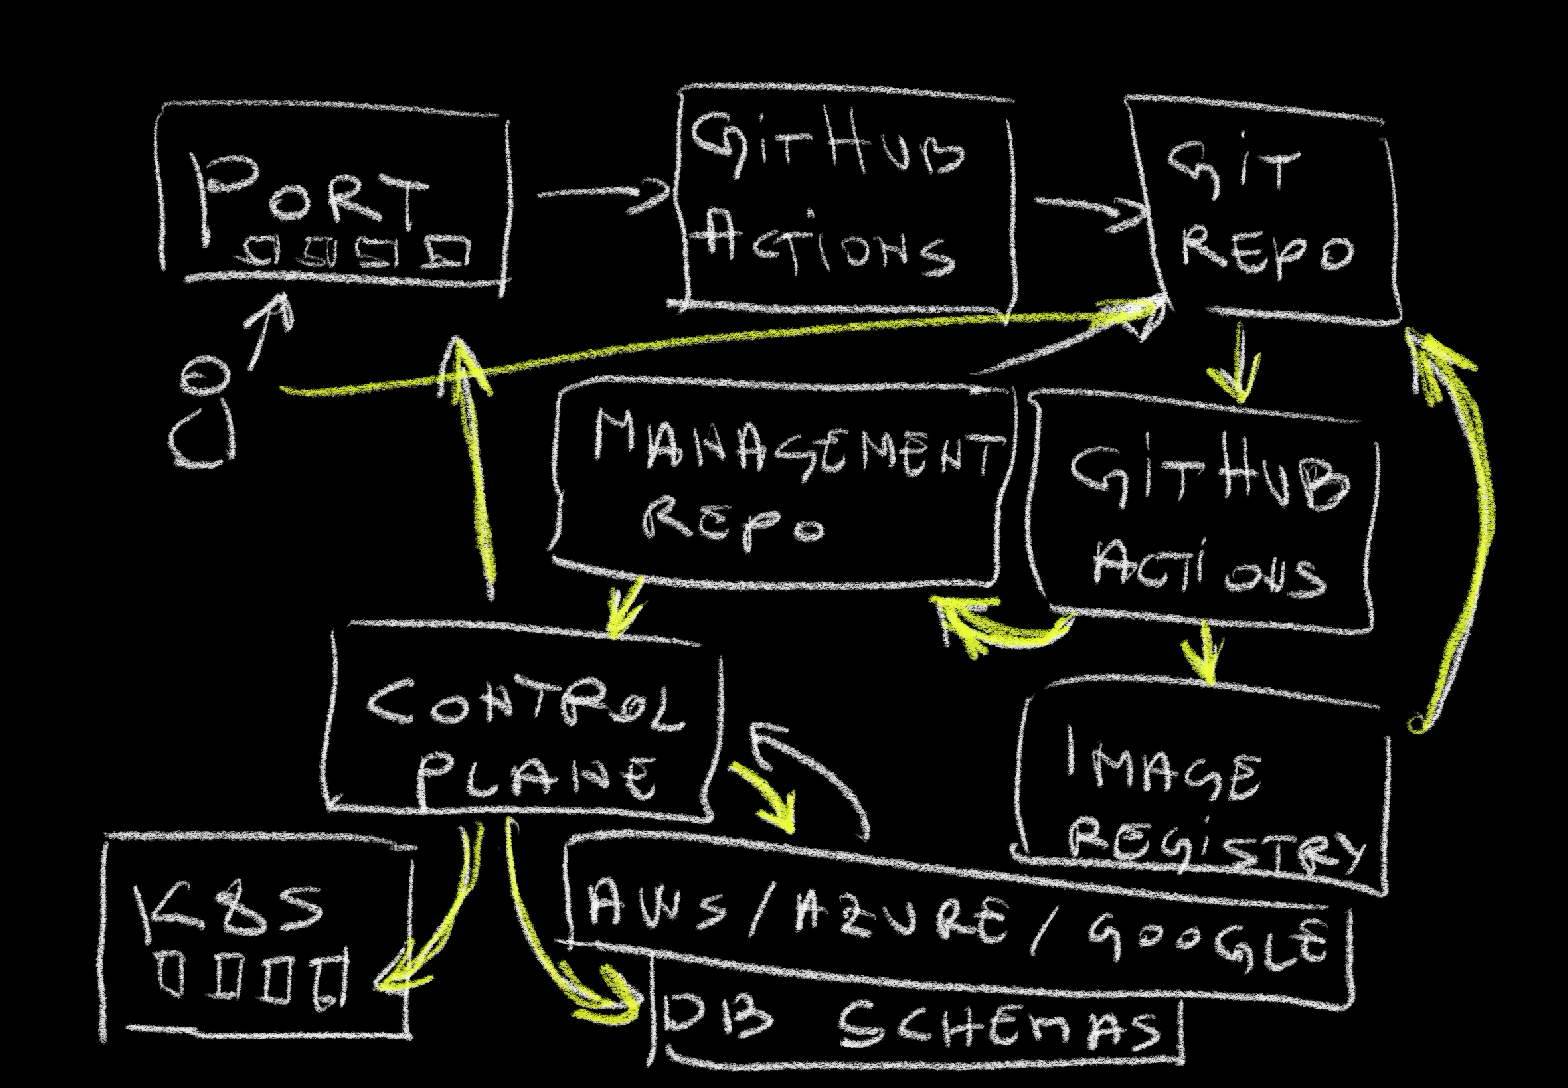 PORT
GITHUB
ACTIONS
GIT
REPO
MANAGEMENT
REPO
GITHUB
ACTIONS
CONTROL
PLANE
IMAGE
REGISTRY
K8S
AWS/AZURE/GOOGLE
DB SCHEMAS